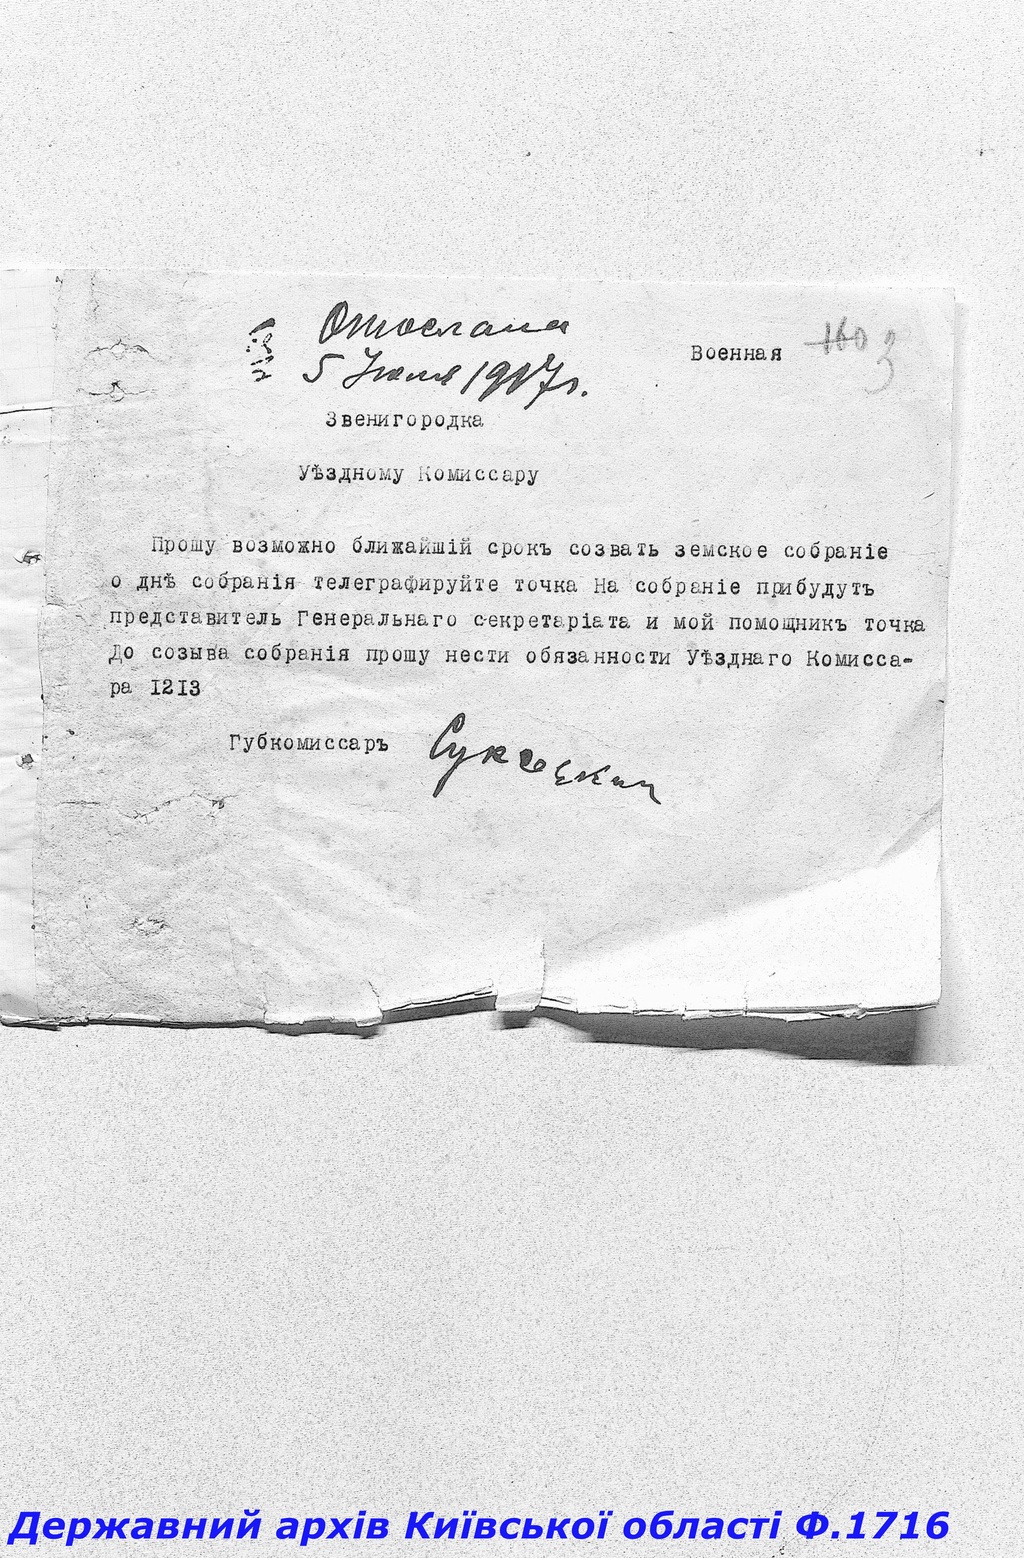 Отослана
5 Июля 1917г.
Военная 160 3
Звенигородка
Уѣздному Комиссару
Прошу возможно ближайшій срокъ созвать земское собраніе
о днѣ собранія телеграфируйте точка На собраніе прибудутъ
представитель Генеральнаго секретаріата и мой помощникъ точка
До созыва собранія прошу нести обязанности Уѣзднаго Комисса-
ра 1213
Губкомиссаръ
Державний архів Київської області Ф.1716